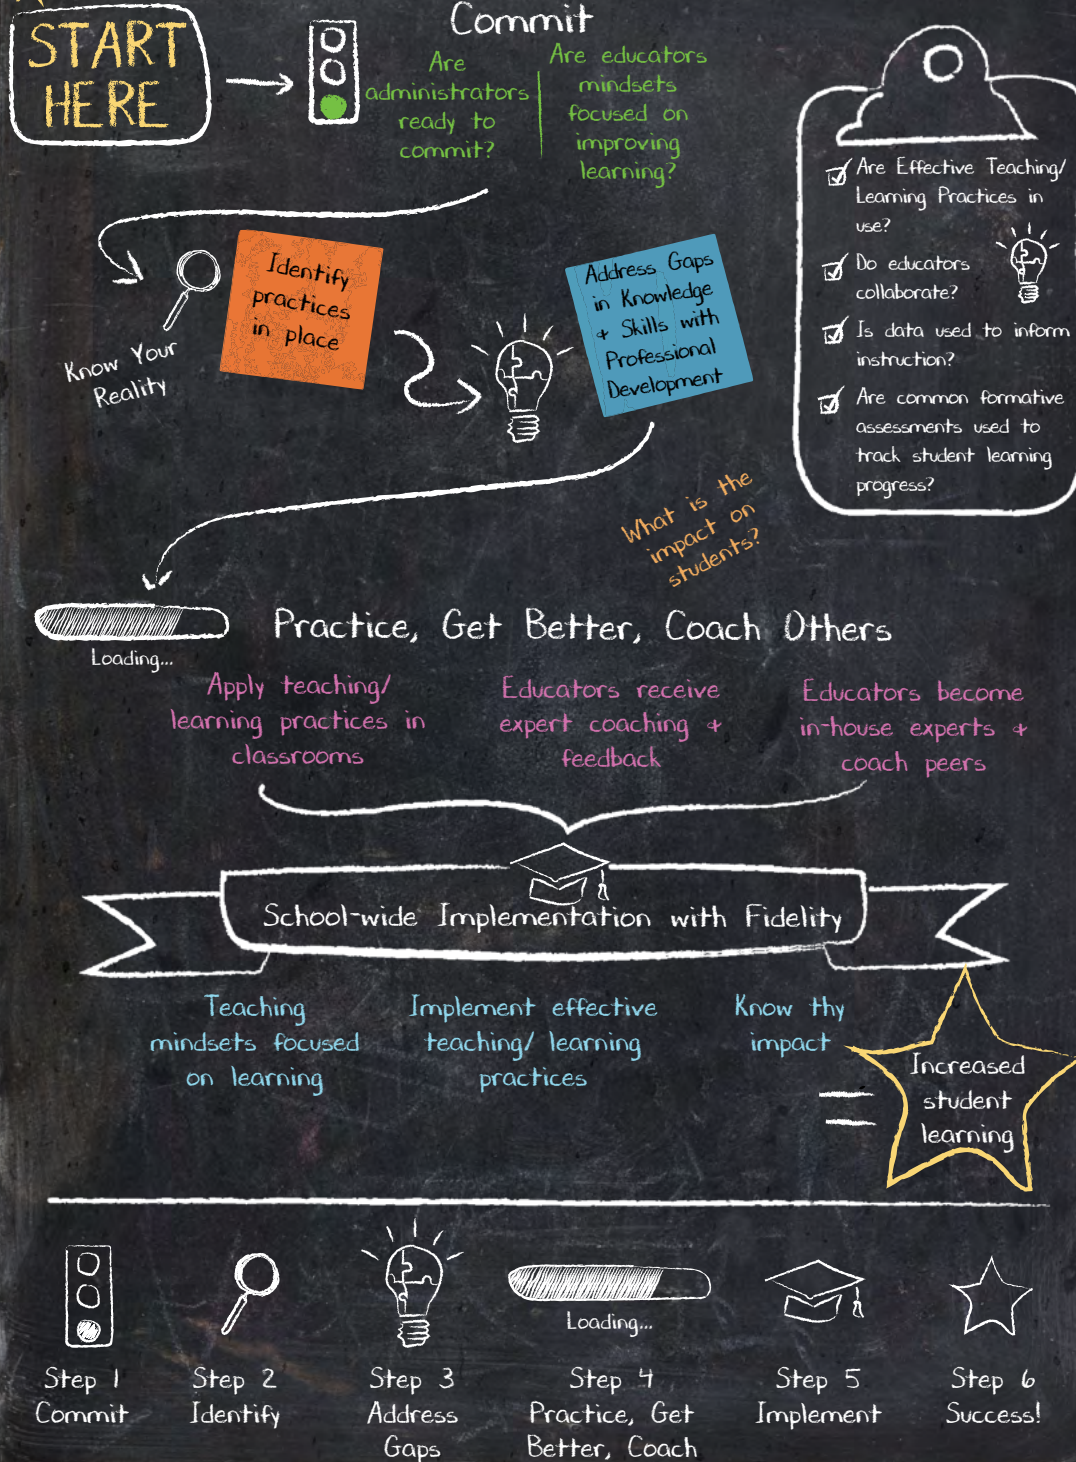 START
HERE
Commit
Are
administrators
ready to
commit?
Are educators
mindsets
focused on
improving
learning?
Are Effective Teaching/
Learning Practices in
use?
Do educators
collaborate?
Is data used to inform
instruction?
Are common formative
assessments used to
track student learning
progress?
Know Your
Reality
Identify
practices
in place
Address Gaps
in Knowledge
& Skills with
Professional
Development
What is the
impact on
students?
Loading...
Practice, Get Better, Coach Others
Apply teaching/
learning practices in
classrooms
Educators receive
expert coaching &
feedback
Educators become
in-house experts &
coach peers
School-wide Implementation with Fidelity
Teaching
mindsets focused
on learning
Implement effective
teaching/ learning
practices
Know thy
impact
Increased
student
learning
Loading...
Step 1
Commit
Step 2
Identify
Step 3
Address
Gaps
Step 4
Practice, Get
Better, Coach
Step 5
Implement
Step 6
Success!